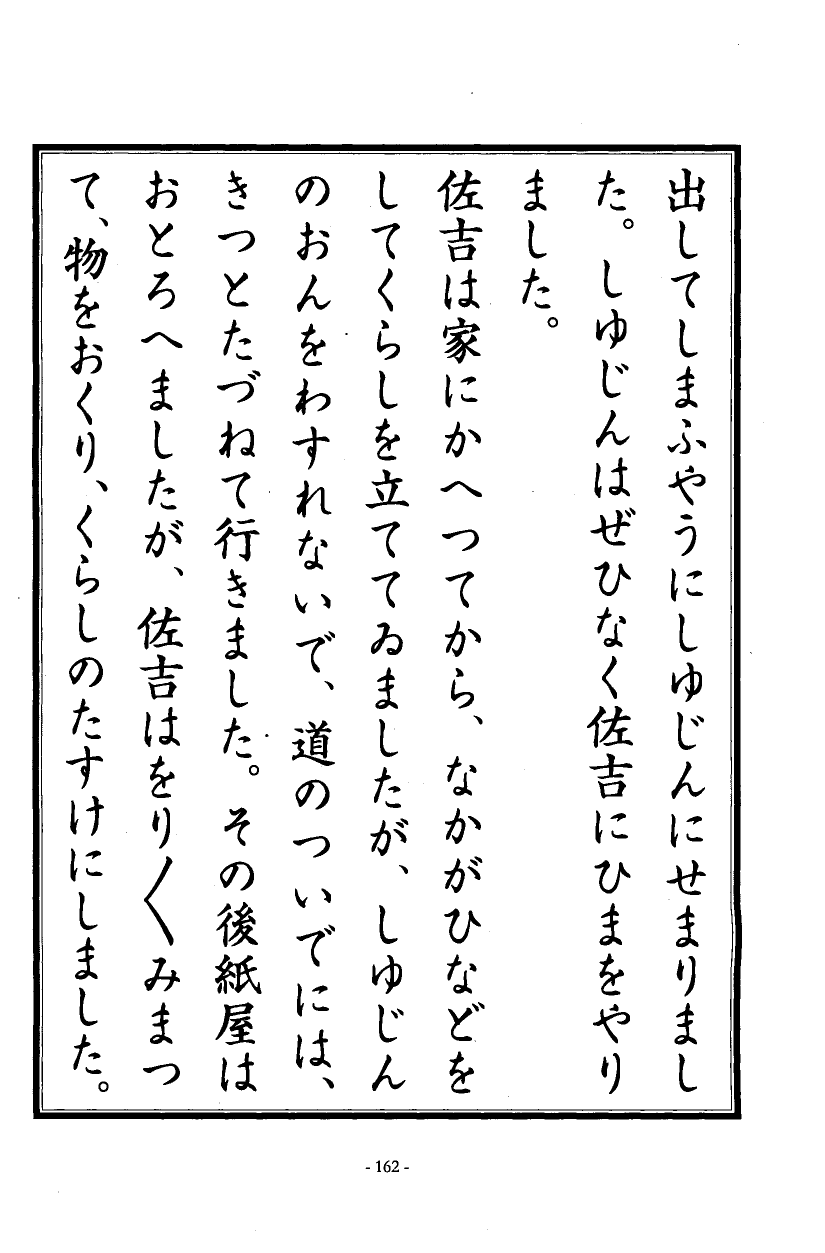 出してしまふやうにしゆじんにせまりまし
た。しゆじんはぜひなく佐吉にひまをやり
ました。
佐吉は家にかへつてから、なかがひなどを
してくらしを立ててゐましたが、しゆじん
のおんをわすれないで、道のついでには、
きつとたづねて行きました。その後紙屋は
おとろへましたが、佐吉はをり〳〵みまつ
て、物をおくり、くらしのたすけにしました。
- 162 -